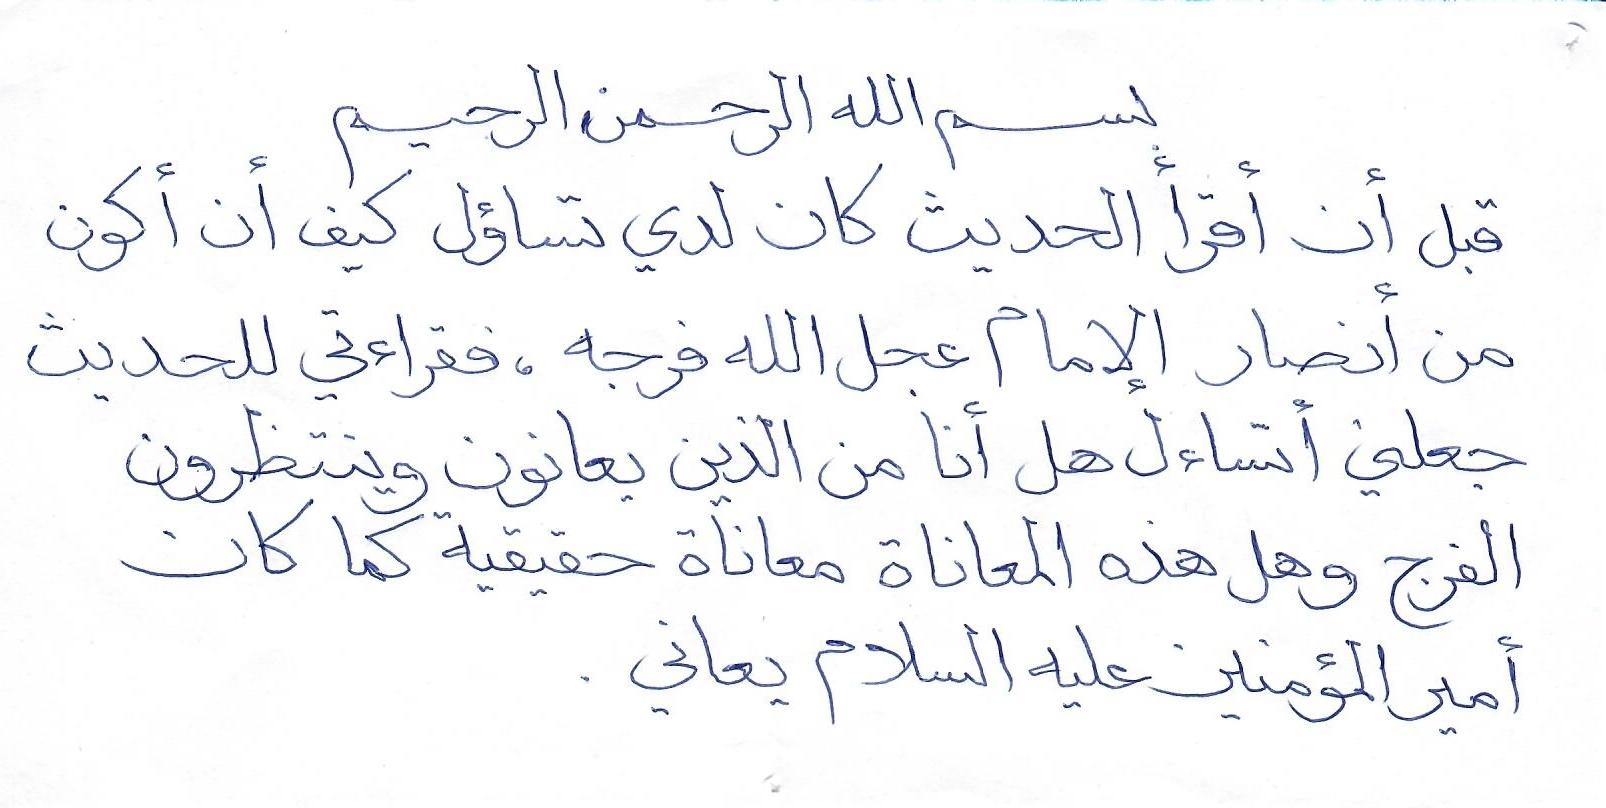 بسم الله الرحمن الرحيم
قبل أن أقرأ الحديث كان لدي تساؤل كيف أن أكون
من أنصار الإمام عجل الله فرجه ، فقراءتي للحديث
جعلني أتساءل هل أنا من الذين يعانون وينتظرون
الفرج وهل هذه المعاناة معاناة حقيقية كما كان
أمير المؤمنين عليه السلام يعاني .